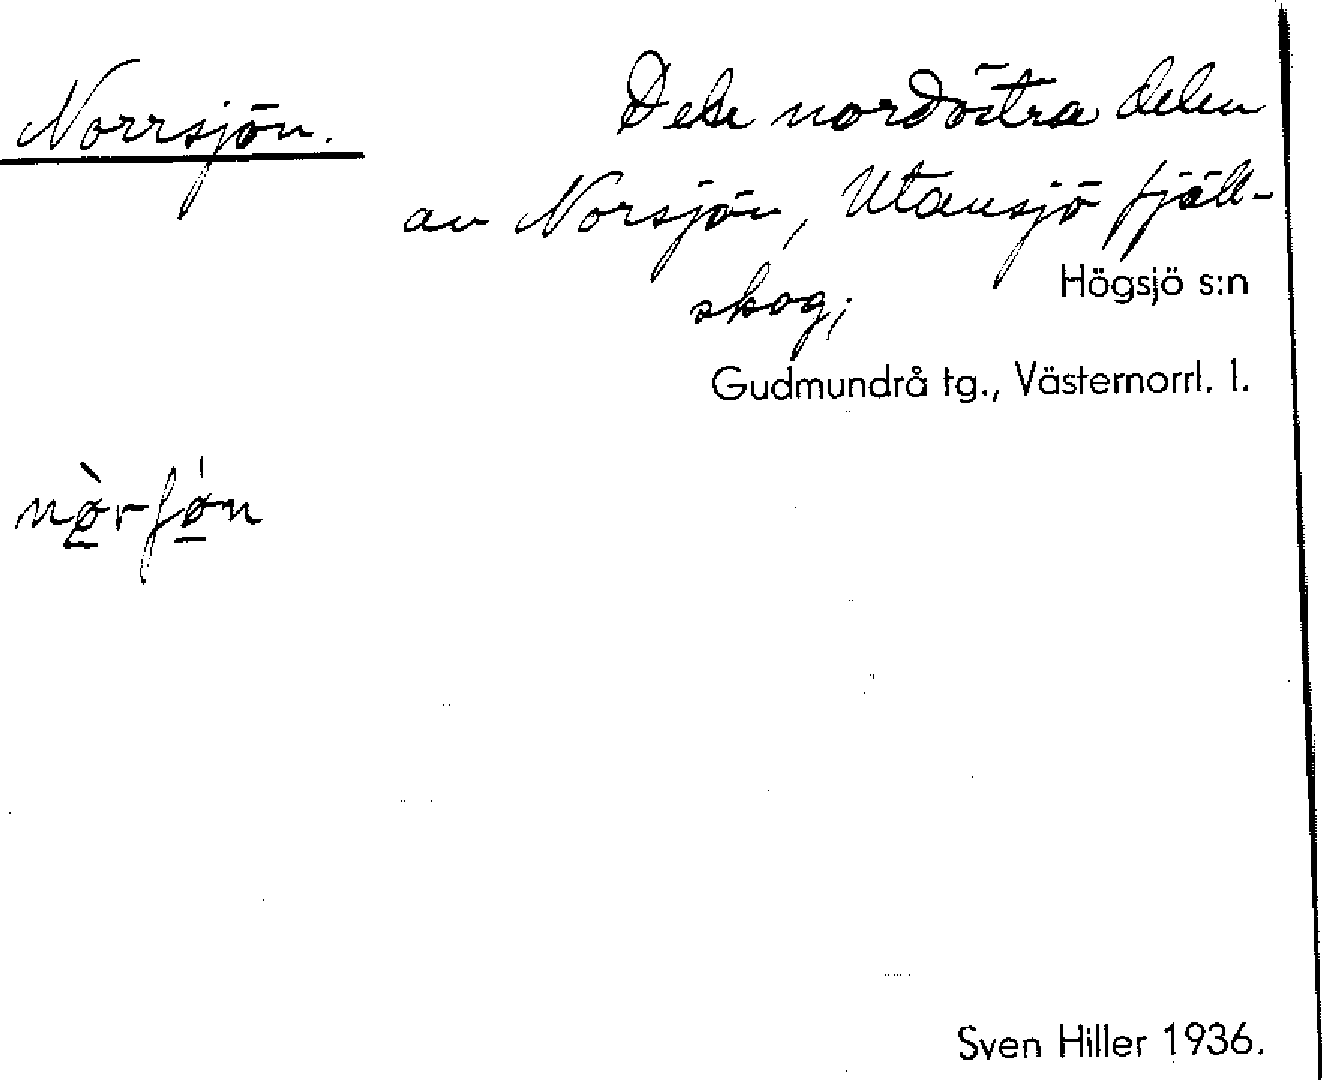 Norrsjön.
Den nordöstra delen
av Norsjön, Utansjö fjäll-
skog;
Högsjö s:n
Gudmundrå tg., Västernorrl. l.
nø̀rʃøn
Sven Hiller 1936.